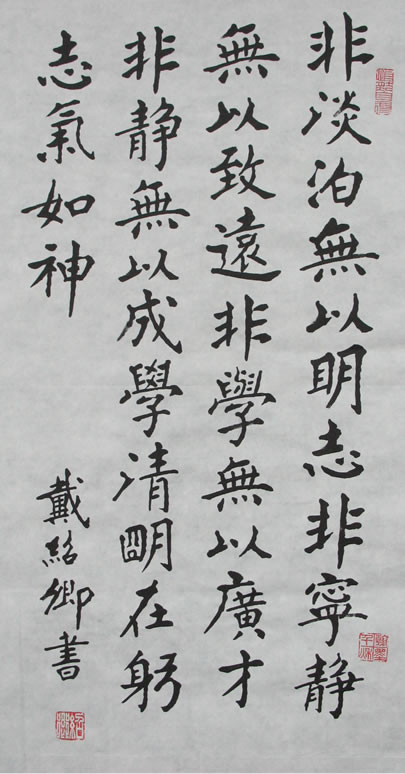 非淡泊無以明志非寧静
無以致遠非學無以廣才
非静無以成學清明在躬
志氣如神
戴紹卿書